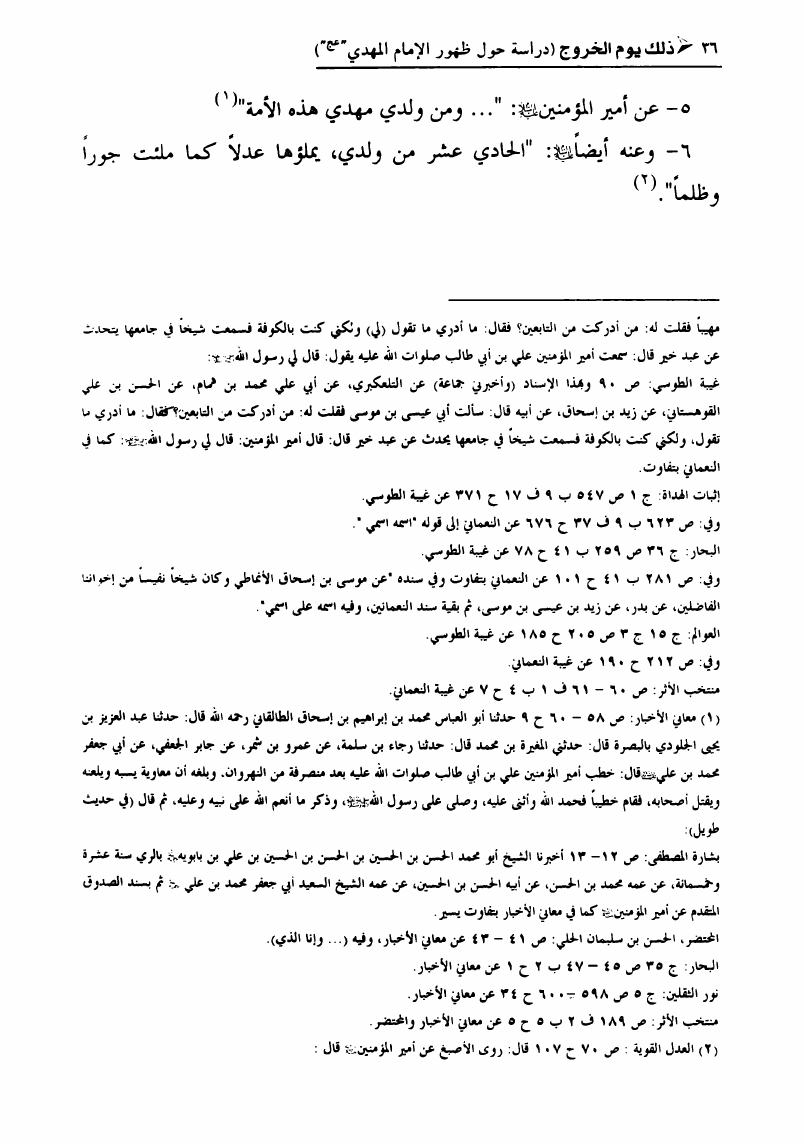 ٣٦ ذلك يوم الخروج (دراسة حول ظهور الإمام المهدي "عج")
٥- عن أمير المؤمنين: "... ومن ولدي مهدي هذه الأمة"(١)
٦- وعنه أيضاً: "الحادي عشر من ولدي، يملؤها عدلاً كما ملئت جوراً
وظلماً".(٢)
مهيباً فقلت له: من أدركت من التابعين؟ فقال: ما أدري ما تقول (لي) ولكني كنت بالكوفة فسمعت شيخاً في جامعها يتحدث
عن عبد خير قال: سمعت أمير المؤمنين علي بن أبي طالب صلوات الله عليه يقول: قال لي رسول الله:
غيبة الطوسي: ص ٩٠ وبهذا الإسناد (وأخبرني جماعة) عن التلعكبري، عن أبي علي محمد بن همام، عن الحسن بن علي
القوهستاني، عن زيد بن إسحاق، عن أبيه قال: سألت أبي عيسى بن موسى فقلت له: من أدركت من التابعين؟ فقال: ما أدري ما
تقول، ولكني كنت بالكوفة فسمعت شيخاً في جامعها يحدث عن عبد خير قال: قال أمير المؤمنين: قال لي رسول الله: كما في
النعماني بتفاوت.
إثبات الهداة: ج ١ ص ٥٤٧ ب ٩ ف ١٧ ح ٣٧١ عن غيبة الطوسي.
وفي: ص ٦٢٣ ب ٩ ف ٣٧ ح ٦٧٦ عن النعماني إلى قوله "اسمه اسمي ".
البحار: ج ٣٦ ص ٢٥٩ ب ٤١ ح ٧٨ عن غيبة الطوسي.
وفي: ص ٢٨١ ب ٤١ ح ١٠١ عن النعماني بتفاوت وفي سنده "عن موسى بن إسحاق الأنماطي وكان شيخاً نفيساً من إخواننا
الفاضلين، عن بدر، عن زيد بن عيسى بن موسى، ثم بقية سند النعمانين، وفيه اسمه على اسمي".
العوالم: ج ١٥ ج ٣ ص ٢٠٥ ح ١٨٥ عن غيبة الطوسي.
وفي: ص ٢١٢ ح ١٩٠ عن غيبة النعماني.
منتخب الأثر: ص ٦٠ – ٦١ ف ١ ب ٤ ح ٧ عن غيبة النعماني.
(١) معاني الأخبار: ص ٥٨ – ٦٠ ح ٩ حدثنا أبو العباس محمد بن إبراهيم بن إسحاق الطالقاني رحمه الله قال: حدثنا عبد العزيز بن
يحيى الجلودي بالبصرة قال: حدثني المغيرة بن محمد قال: حدثنا رجاء بن سلمة، عن عمرو بن شمر، عن جابر الجعفي، عن أبي جعفر
محمد بن علي قال: خطب أمير المؤمنين علي بن أبي طالب صلوات الله عليه بعد منصرفة من النهروان، وبلغه أن معاوية يسبه ويلعنه
ويقتل أصحابه، فقام خطيباً فحمد الله وأثنى عليه، وصلى على رسول الله، وذكر ما أنعم الله على نبيه وعليه، ثم قال (في حديث
طويل):
بشارة المصطفى: ص ١٢- ١٣ أخبرنا الشيخ أبو محمد الحسن بن الحسين بن الحسن بن الحسين بن علي بن بابويه بالري سنة عشرة
وخمسمائة، عن عمه محمد بن الحسن، عن أبيه الحسن بن الحسين، عن عمه الشيخ السعيد أبي جعفر محمد بن علي ثم بسند الصدوق
المتقدم عن أمير المؤمنين كما في معاني الأخبار بتفاوت يسير.
المختضر، الحسن بن سليمان الحلي: ص ٤١ – ٤٣ عن معاني الأخبار، وفيه (... وإنا الذي).
البحار: ج ٣٥ ص ٤٥ – ٤٧ ب ٢ ح ١ عن معاني الأخبار.
نور الثقلين: ج ٥ ص ٥٩٨ – ٦٠٠ ح ٣٤ عن معاني الأخبار.
منتخب الأثر: ص ١٨٩ ف ٢ ب ٥ ح ٥ عن معاني الأخبار والمختضر.
(٢) العدل القوية : ص ٧٠ ح ١٠٧ قال: روى الأصبغ عن أمير المؤمنين قال :